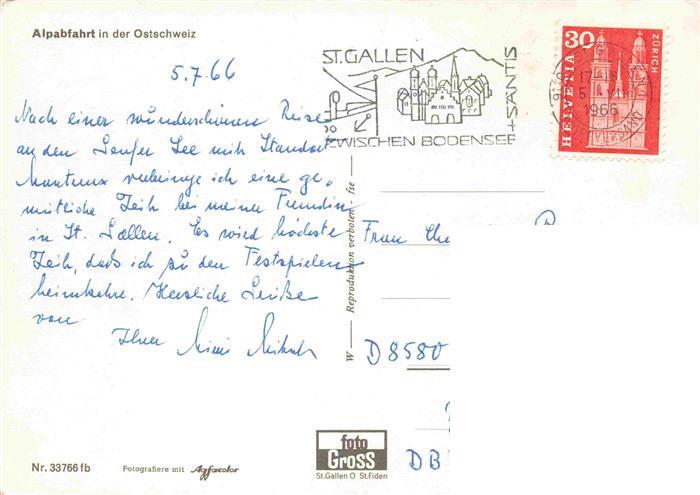 Alpabfahrt in der Ostschweiz
5.7.66
Nach einer wunderschönen Reise
an den Genfer See mit Standort
Montreux verbringe ich eine ge-
mütliche Zeit bei meiner Freundin
in St. Gallen. Es wird höchste
Zeit, daß ich zu den Festspielen
heimkehre. Herzliche Grüße
von
Ihrer Mimi
ST. GALLEN
ZWISCHEN BODENSEE + SÄNTIS
30
HELVETIA
ZÜRICH
1966
W — Reproduktion verboten - fse
Frau Che
D 8580
DB
foto
GROSS
St.Gallen O St.Fiden
Nr. 33766 fb
Fotografiere mit Agfacolor